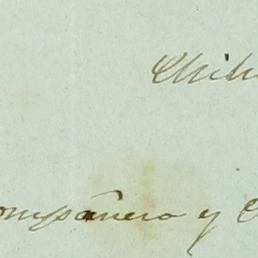 Chihu
ompañero y